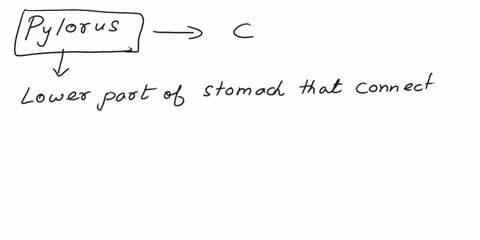 Pylorus → C
Lower part of stomach that connect